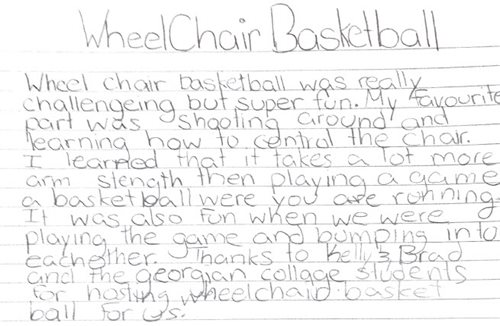 WheelChair Basketball
Wheel chair basketball was really
challengeing but super fun. My favourite
part was shooting around and
learning how to control the chair.
I learned that it takes a lot more
arm slength then playing a game
a basket ball were you are running.
It was also fun when we were
playing the game and bumping into
eachother. Thanks to Kelly & Brad
and the georgian collage students
for hosting wheelchaid basket
ball for us.